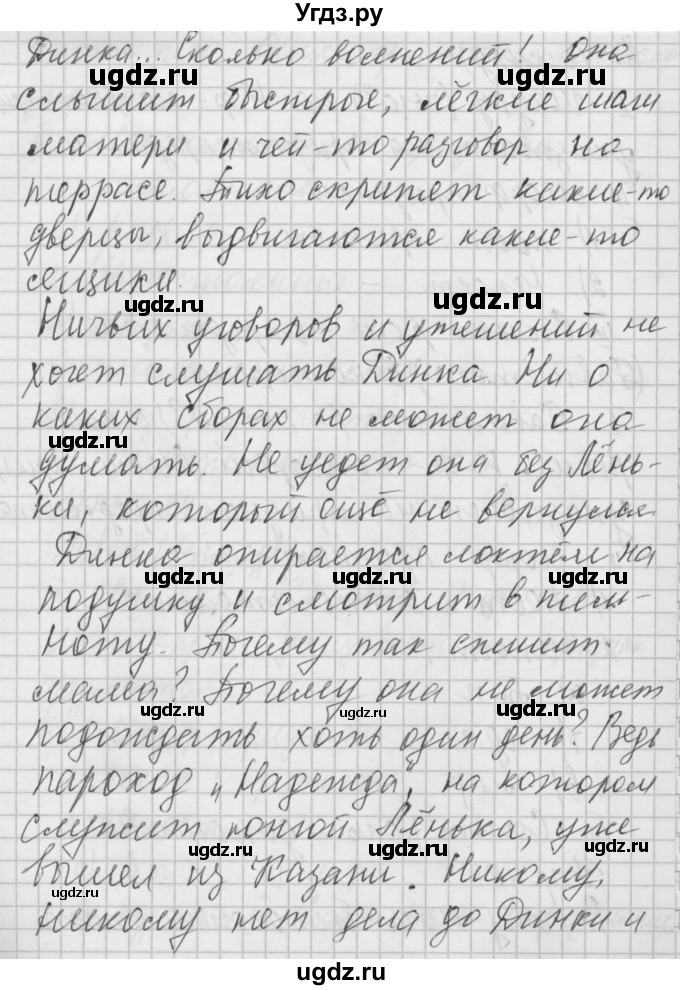 Угдз.ру
Динка... Сколько волнений! Она
слышит быстрые, лёгкие шаги
матери и чей-то разговор на
террасе. Тихо скрипят какие-то
дверцы, выдвигаются какие-то
ящики.
Ничьих уговоров и утешений не
хочет слушать Динка. Ни о
каких сборах не может она
думать. Не уедет она без Лёнь-
ки, который ещё не вернулся.
Динка опирается локтем на
подушку и смотрит в тем-
ноту. Почему так спешит
мама? Почему она не может
подождать хоть один день? Ведь
пароход „Надежда", на котором
служит юнгой Лёнька, уже
вышел из Казани. Никому,
никому нет дела до Динки и
ugdz.ru